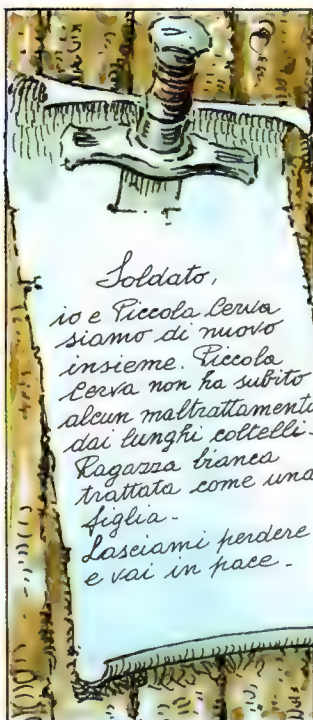 Soldato,
io e Piccola Cerva
siamo di nuovo
insieme. Piccola
Cerva non ha subito
alcun maltrattamento
dai lunghi coltelli.
Ragazza bianca
trattata come una
figlia.
Lasciami perdere
e vai in pace.